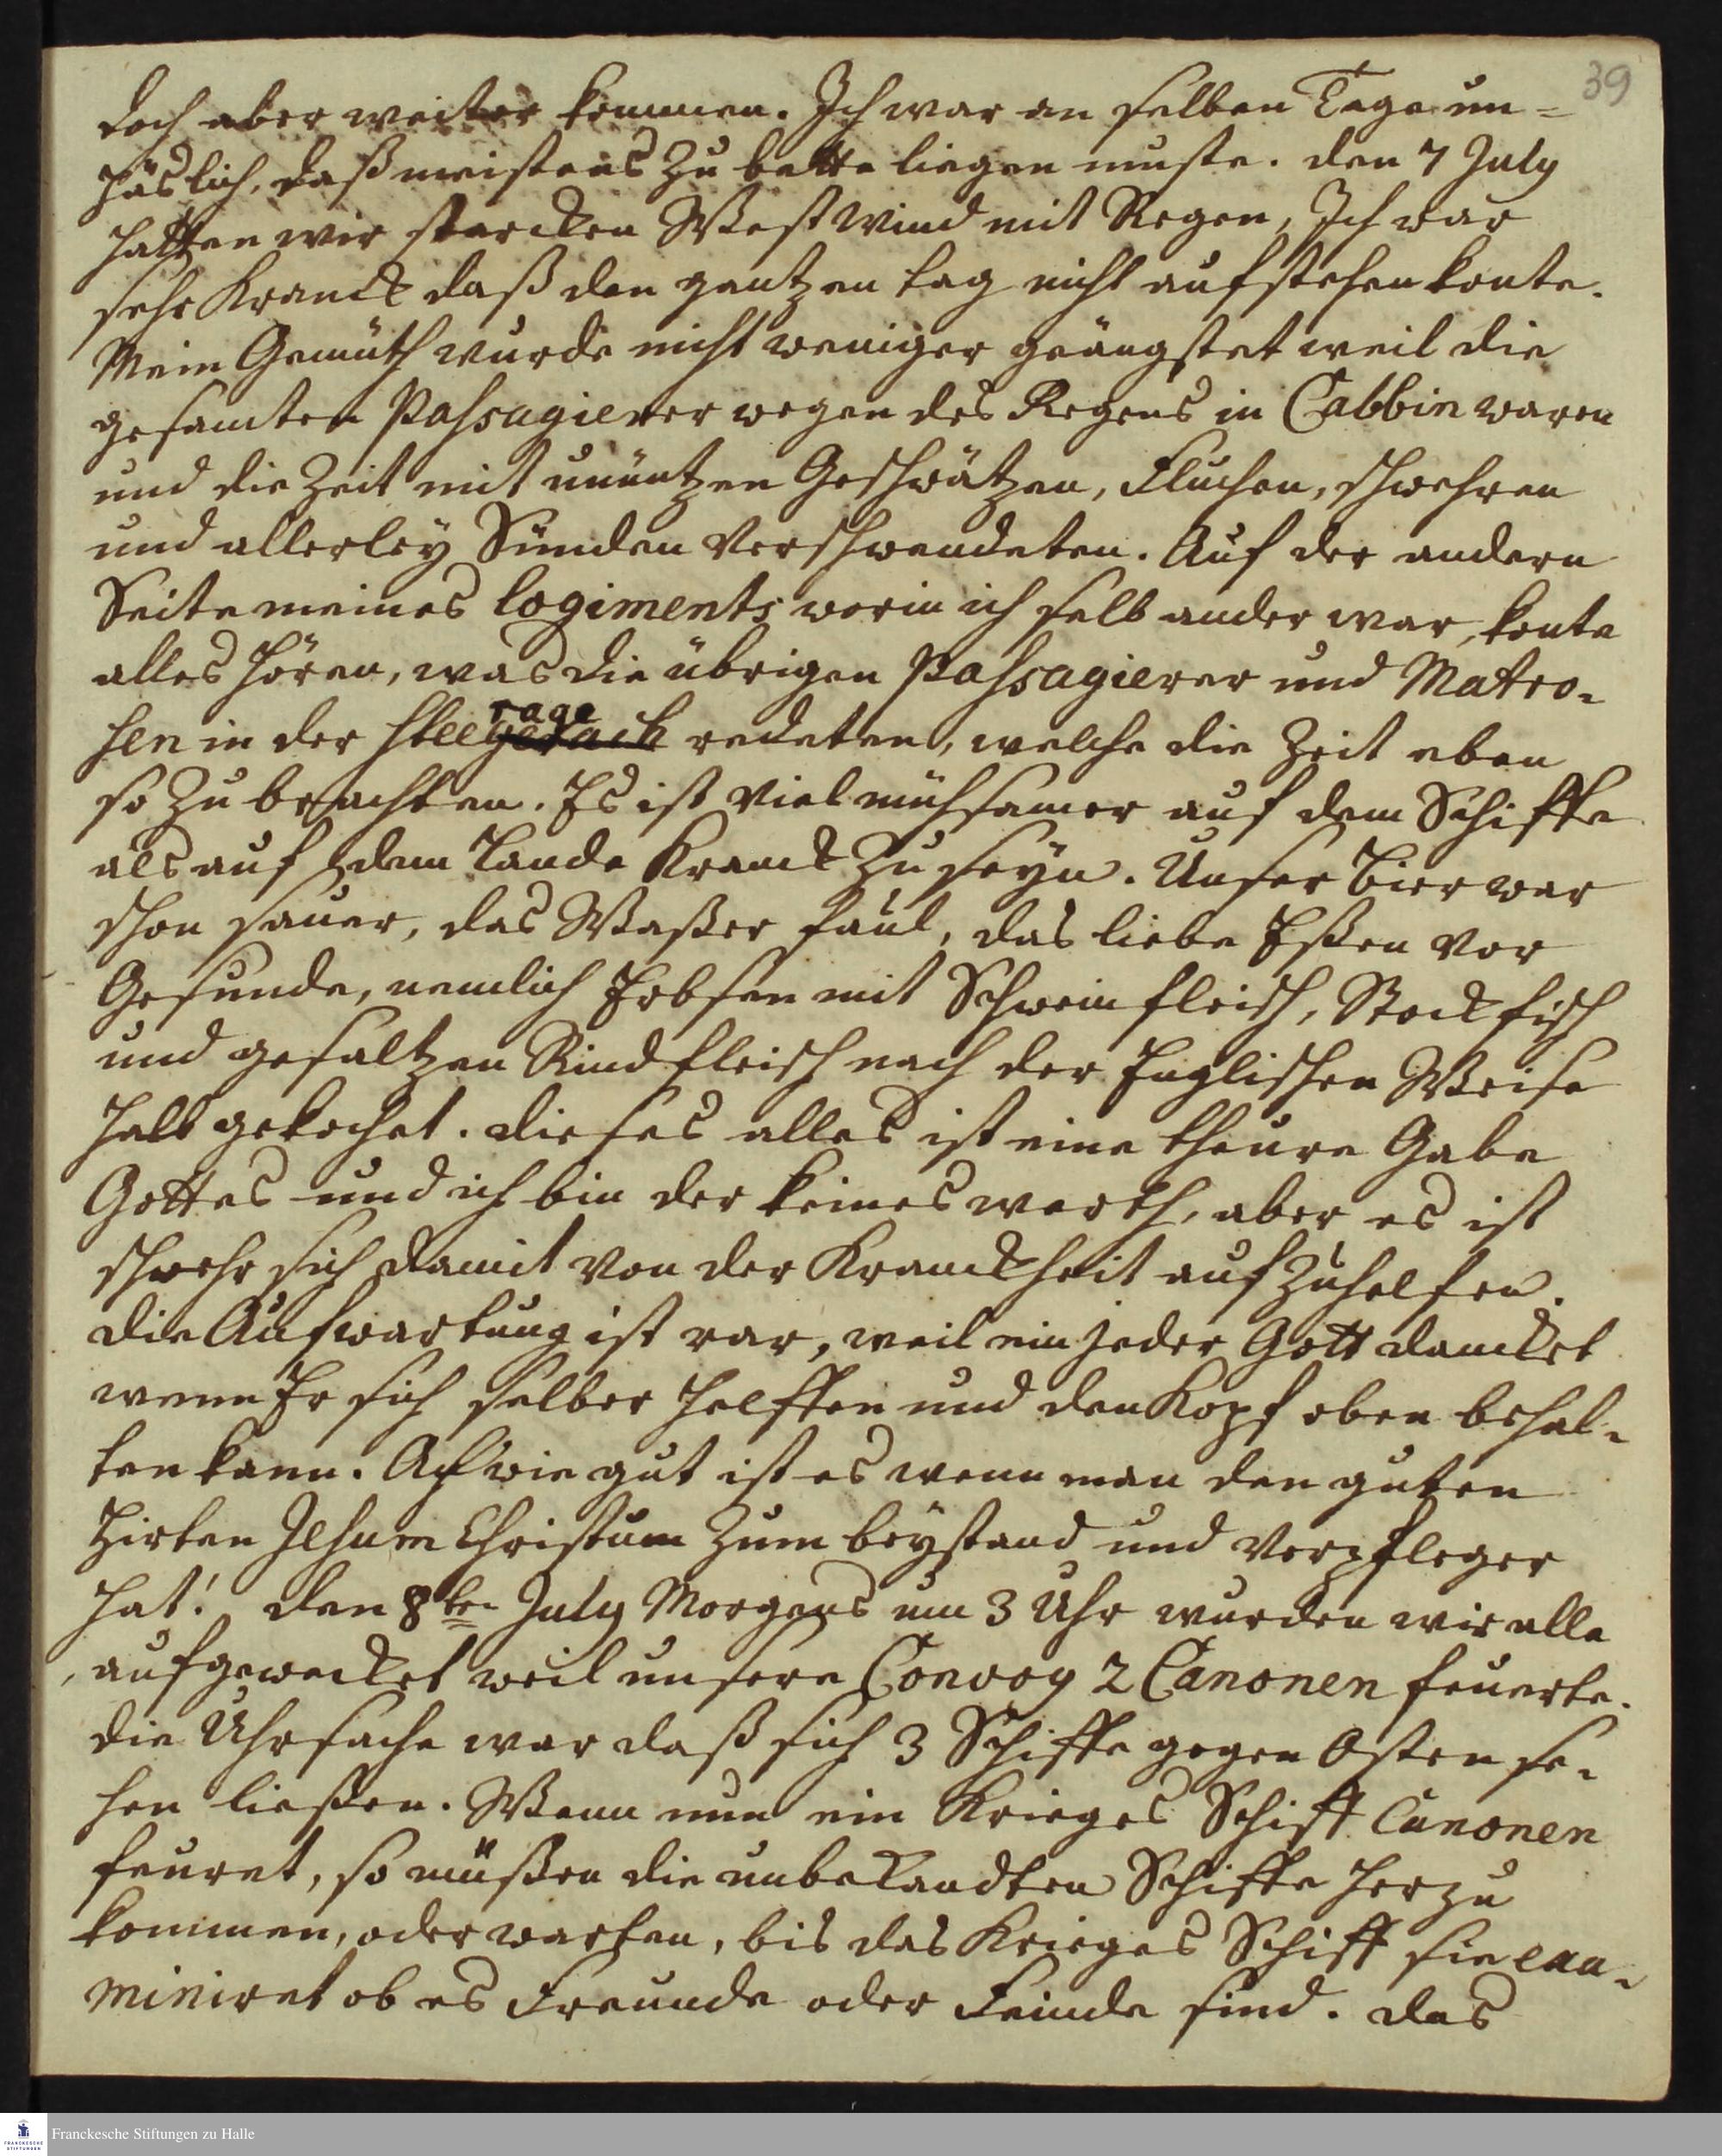 39
doch aber weiter kommen. Ich war an selben Tage un=
päslich, daß meistens zu bette liegen muste. den 7 July
hatten wir starcken West Wind mit Regen, Ich war
sehr Kranck daß den gantzen tag nicht aufstehen konte.
Mein Gemüth wurde nicht weniger geängstet weil die
gesamten Passagierer wegen des Regens in Cabbin waren
und die Zeit mit unnützen Geschwätzen, Fluchen, schwehren
und allerley Sünden verschwendeten. Auf der andern
Seite meines logiments worin ich selb ander war, konte
alles hören, was die übrigen Passagierer und Matro-
rage
sen in der stee redeten, welche die Zeit eben
so zu brachten. Es ist viel mühsamer auf dem Schiffe
als auf dem Lande Kranck zu seyn. Unser Bier war
schon sauer, das Waßer faul, das liebe Eßen vor
Gesunde, nemlich Erbsen mit Schwein fleisch, Stock fisch
und gesaltzen Rindfleisch nach der Englischen Weise
halb gekochet. dieses alles ist eine theure Gabe
Gottes und ich bin der keines werth, aber es ist
schwehr sich damit von der Kranckheit aufzuhelfen.
die Aufwartung ist rar, weil ein jeder Gott dancket
wenn Er sich selber helffen und den Kopf oben behal-
ten kann. Ach wie gut ist es wenn man den guten
Hirten Jesum Christum zum beystand und Verpfleger
hat! den 8ten July Morgens um 3 Uhr wurden wir alle
aufgewecket weil unsere Convoy 2 Canonen feuerte.
die Uhrsache war daß sich 3 Schiffe gegen Osten se-
hen ließen. Wenn nun ein Krieges Schiff Canonen
feuret, so müßen die unbekandten Schiffe herzu
kommen, oder warten, bis das Krieges Schiff sie exa-
miniret ob es Freunde oder Feinde sind. das
Franckesche Stiftungen zu Halle
FRANCKESCHE
STIFTUNGEN